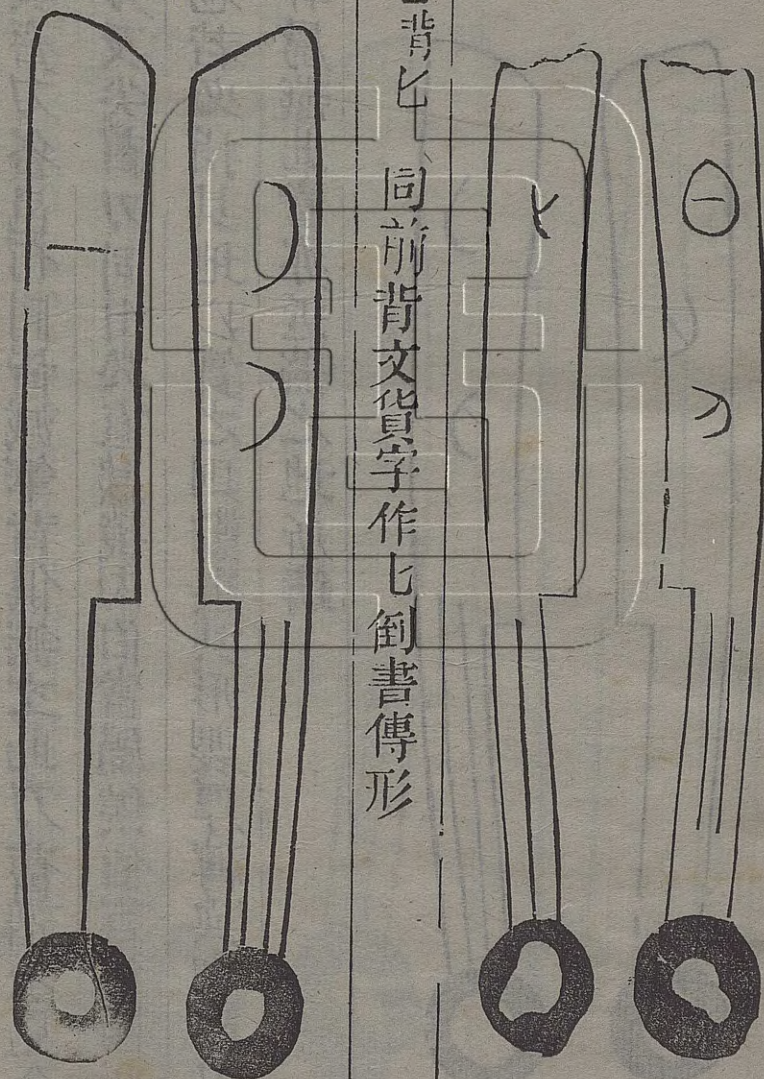 背匕
同前背文貨字作匕倒書傳形